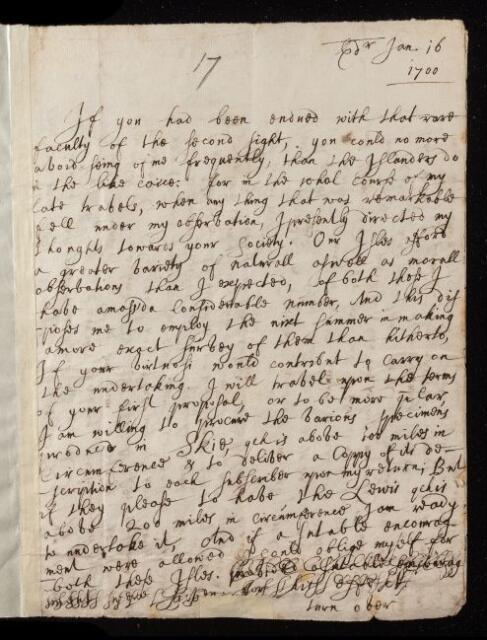 Edr Jan. 16
1700
17
If you had been endued with that rare
faculty of the second sight, you could no more
avoid seing of me frequently, than the Islanders do
in the like caice: for in the whol course of my
late travels, when any thing that was remarkable
fell under my observation, I presently directed my
thoughts towards your Society. Our Isles afford
a greater variety of naturall aswell as morall
observations than I expected, of both these I
have amassd a considerable number, And this dis
-poses me to employ the nixt summer in making
a more exact survey of them than hitherto,
If your virtuosi would contribut to carry on
the undertaking. I will travel upon the terms
of your first proposal, or to be more
I am willing to procure the various specimens
produced in Skie, qch is above 100 miles in
circumference & to deliver a Coppy of its de-
scription to each subscriber upon my return; But
if they please to have the Lewis qch is
above 200 miles in circumference I am ready
to undertake it, And if a sutable encourag
ment were allowed I could oblige myself for
both these Isles.
turn over